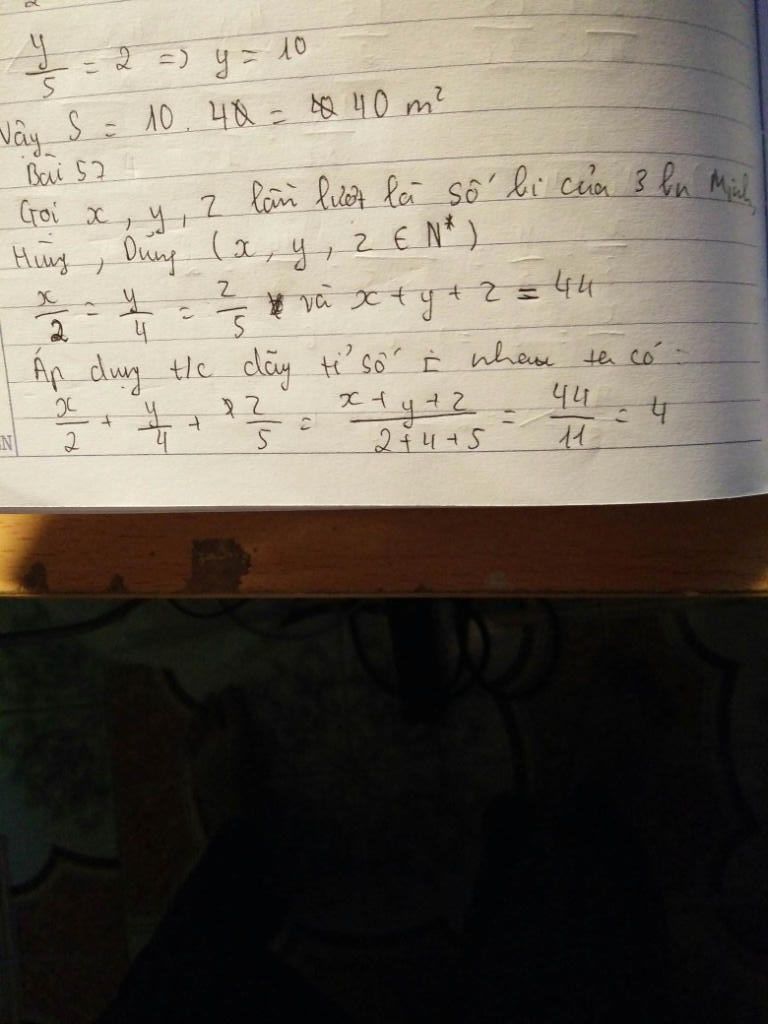 y/5 = 2 => y = 10
Vậy S = 10 . 4 = 40 m²
Bài 57
Gọi x, y, z lần lượt là số bi của 3 bn Minh,
Hùng, Dũng (x, y, z ∈ N*)
x/2 = y/4 = z/5 và x + y + z = 44
Áp dụng t/c dãy tỉ số = nhau ta có:
x/2 + y/4 + z/5 = x + y + z / 2 + 4 + 5 = 44/11 = 4